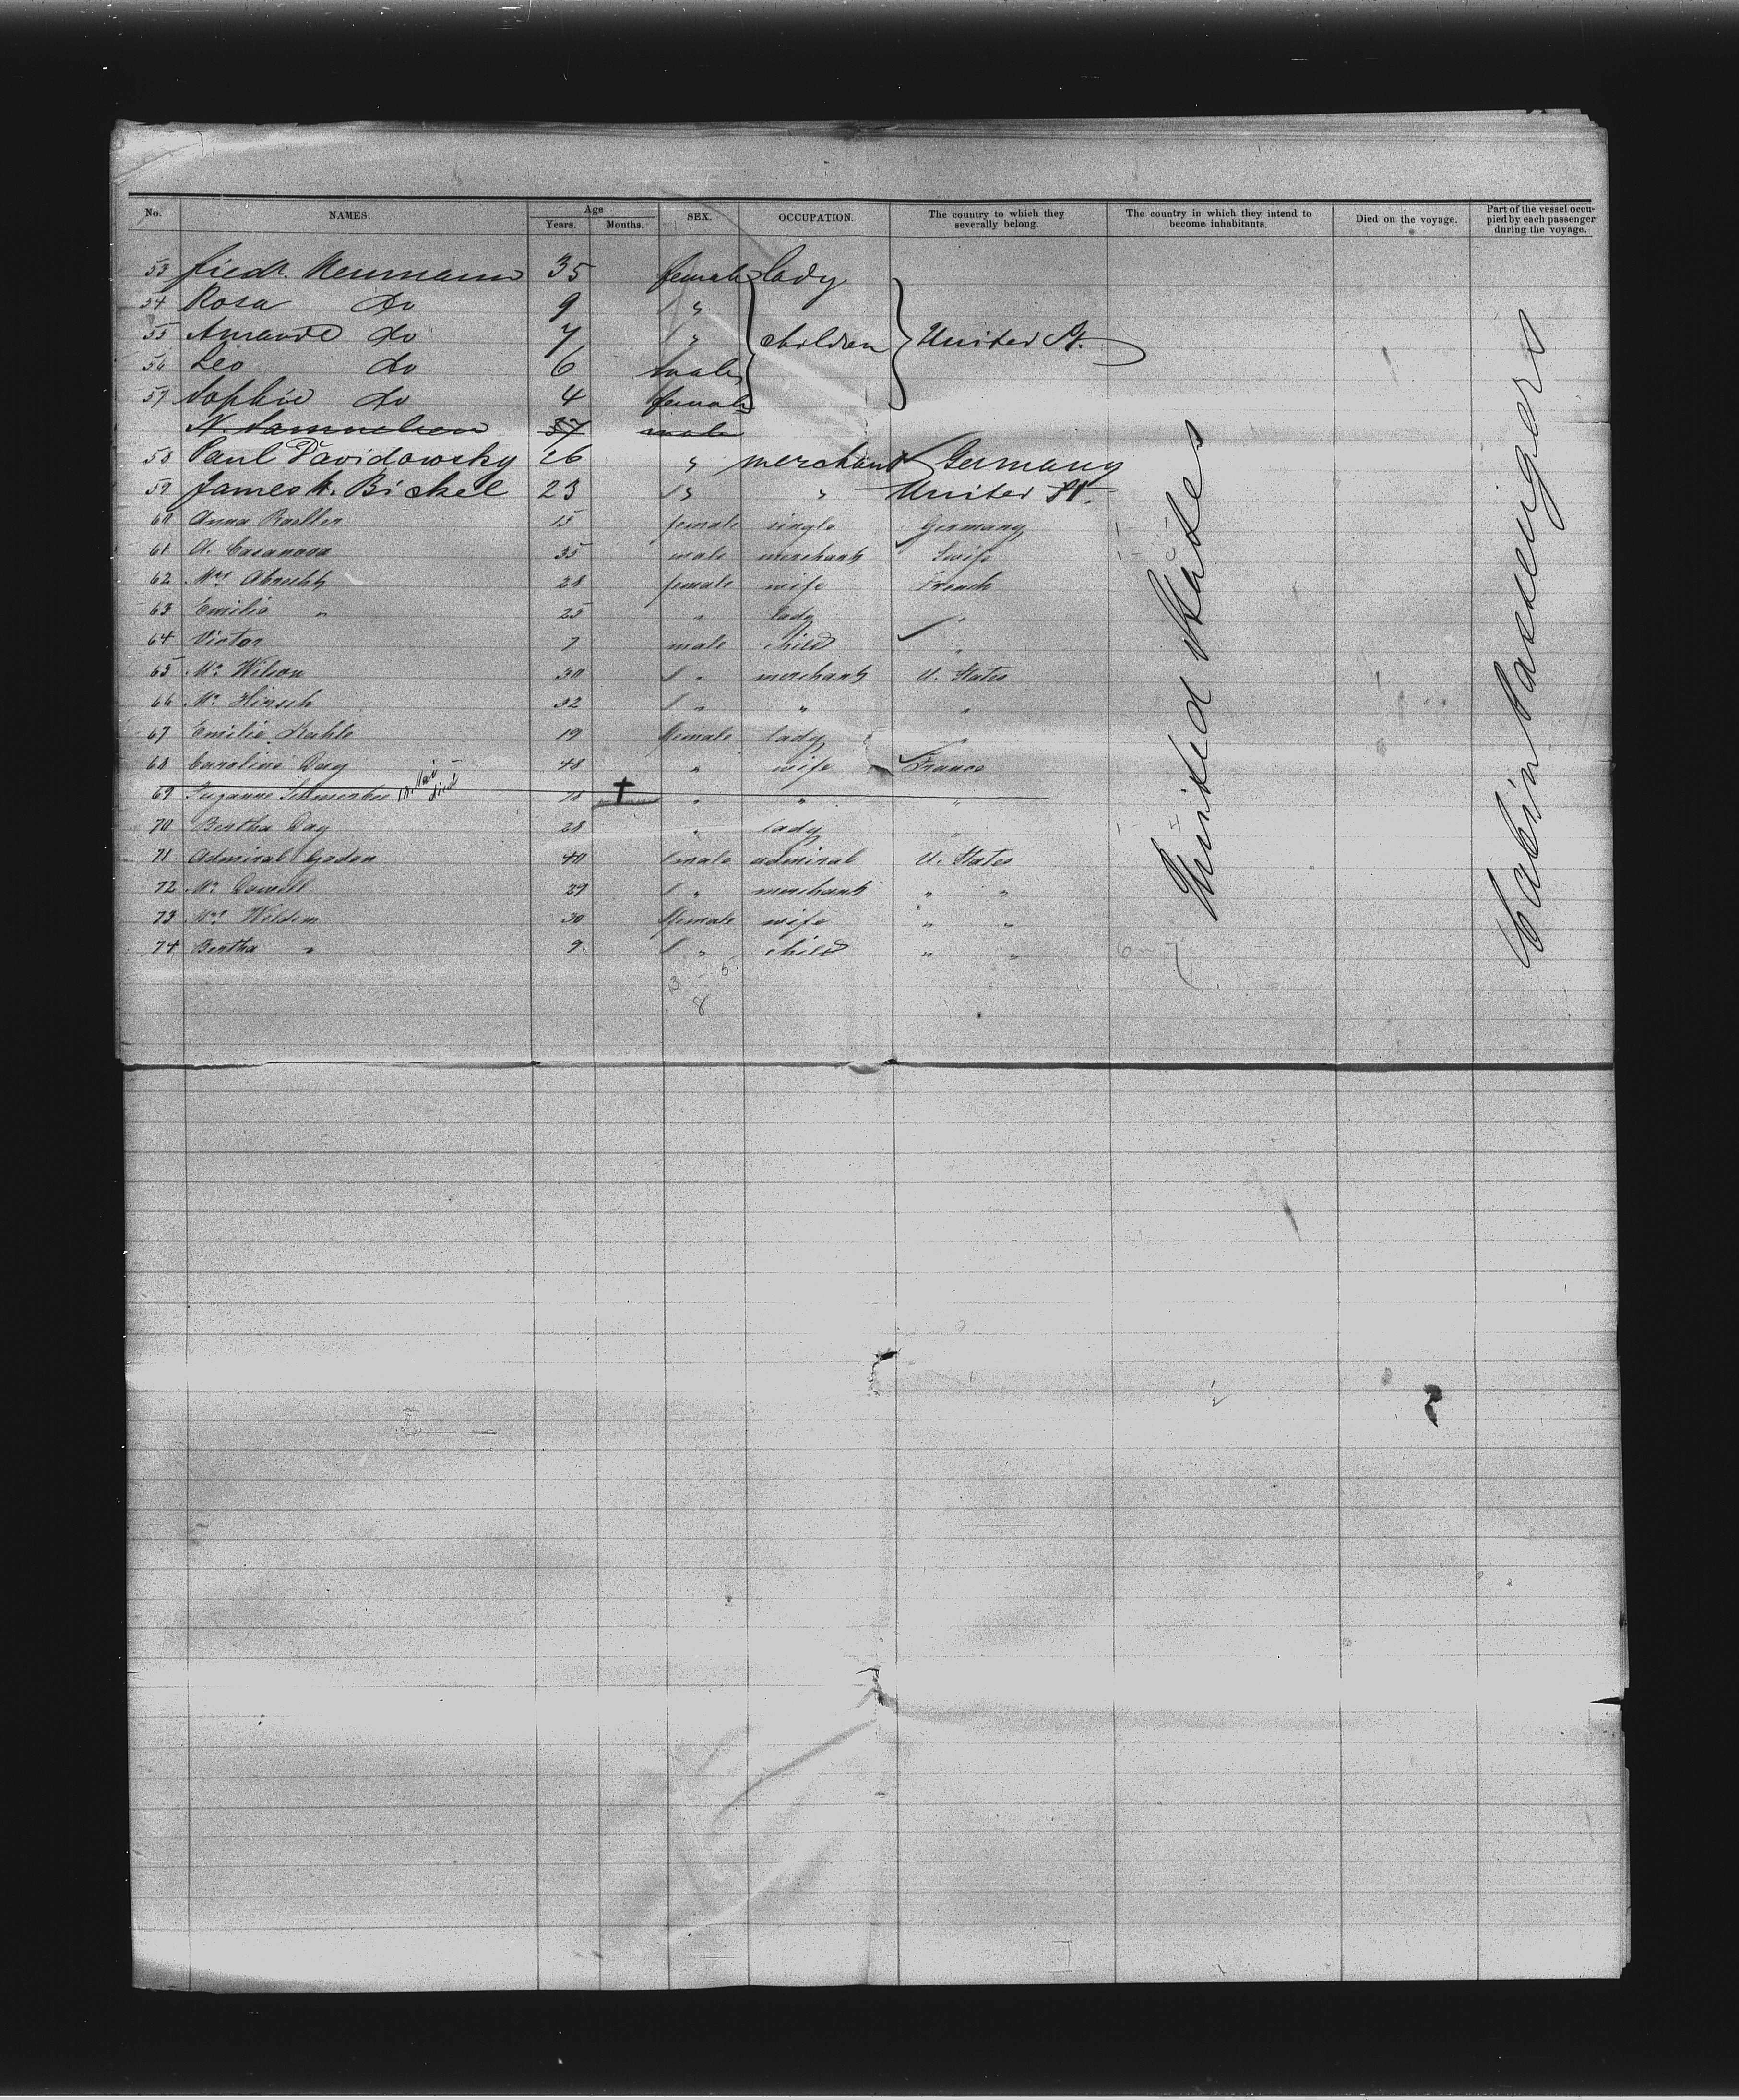 No. NAMES. Age Years. Months. SEX. OCCUPATION. The country to which they severally belong. The country in which they intend to become inhabitants. Died on the voyage. Part of the vessel occupied by each passenger during the voyage.
53 Friedr. Neumann 35 female lady
54 Rosa do 9 "
55 Amande do 7 " children United St.
56 Leo do 6 male
57 Sophie do 4 female
N. Samuelson 37 male
58 Paul Davidowsky 26 " merchant Germany
59 James H. Bickel 23 " " United St.
60 Anna 15 female single Germany
61 A. Casanova 35 male merchant Swiss
62 Mrs Abrecht 28 female wife French
63 Emilie " 25 " lady "
64 Victor 7 male child "
65 Mr Wilson 30 " merchant U. States
66 Mr Hirsch 32 " " "
67 Emilie Kuhls 19 female lady "
68 Caroline Day 48 " wife France
69 Suzanne 18. Mai died 78 † " " "
70 Bertha Day 28 " lady "
71 Admiral Godon 40 male admiral U. States
72 Mr 29 " merchant " "
73 Mrs Wilden 30 female wife " "
74 Bertha " 9 " child " " 6-7
3-5
8
United States
Cabin Passengers